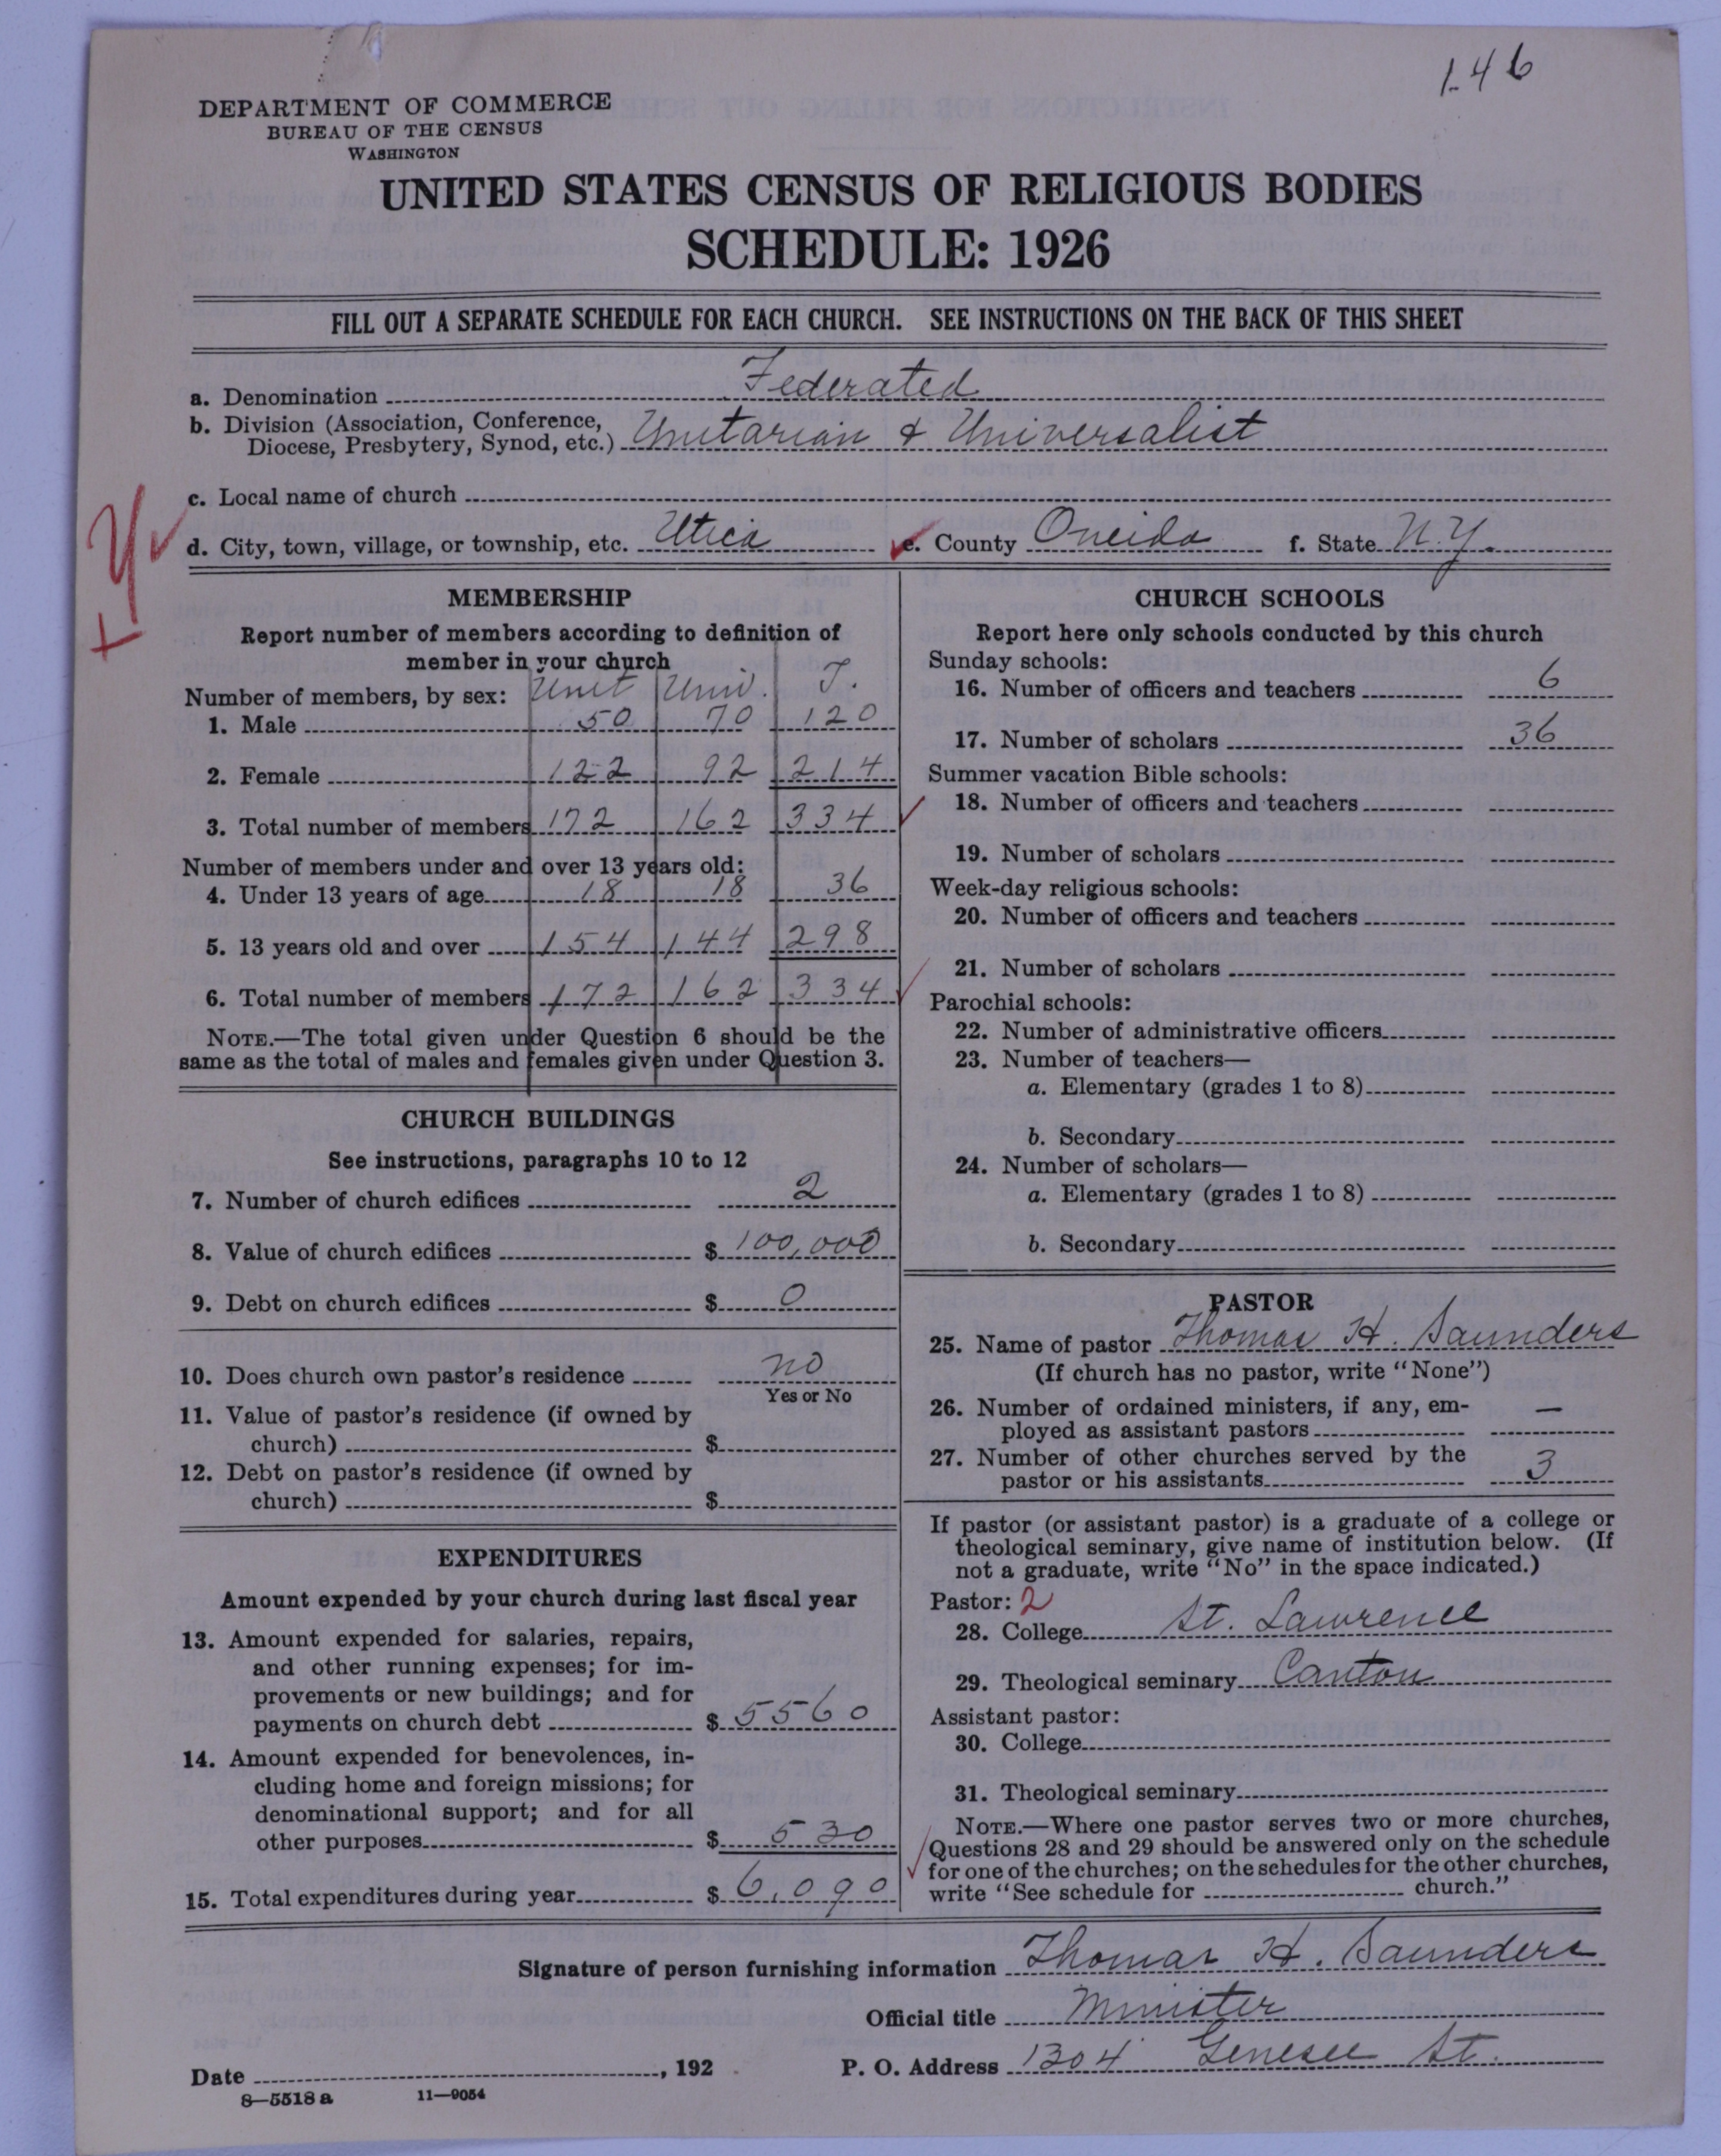 146
DEPARTMENT OF COMMERCE
BUREAU OF THE CENSUS
WASHINGTON
UNITED STATES CENSUS OF RELIGIOUS BODIES
SCHEDULE: 1926
FILL OUT A SEPARATE SCHEDULE FOR EACH CHURCH. SEE INSTRUCTIONS ON THE BACK OF THIS SHEET
a. Denomination Federated
b. Division (Association, Conference,
Diocese, Presbytery, Synod, etc.) Unitarian & Universalist
c. Local name of church
d. City, town, village, or township, etc. Utica e. County Oneida f. State N.Y.
MEMBERSHIP
Report number of members according to definition of
member in your church
Number of members, by sex: Unit Univ. T.
1. Male 50 70 120
2. Female 122 92 214
3. Total number of members 172 162 334
Number of members under and over 13 years old:
4. Under 13 years of age 18 18 36
5. 13 years old and over 154 144 298
6. Total number of members 172 162 334
NOTE.—The total given under Question 6 should be the
same as the total of males and females given under Question 3.
CHURCH BUILDINGS
See instructions, paragraphs 10 to 12
7. Number of church edifices 2
8. Value of church edifices $ 100,000
9. Debt on church edifices $ 0
10. Does church own pastor's residence no
Yes or No
11. Value of pastor's residence (if owned by
church) $
12. Debt on pastor's residence (if owned by
church) $
EXPENDITURES
Amount expended by your church during last fiscal year
13. Amount expended for salaries, repairs,
and other running expenses; for im-
provements or new buildings; and for
payments on church debt $ 5560
14. Amount expended for benevolences, in-
cluding home and foreign missions; for
denominational support; and for all
other purposes $ 530
15. Total expenditures during year $ 6,090
CHURCH SCHOOLS
Report here only schools conducted by this church
Sunday schools:
16. Number of officers and teachers 6
17. Number of scholars 36
Summer vacation Bible schools:
18. Number of officers and teachers
19. Number of scholars
Week-day religious schools:
20. Number of officers and teachers
21. Number of scholars
Parochial schools:
22. Number of administrative officers
23. Number of teachers—
a. Elementary (grades 1 to 8)
b. Secondary
24. Number of scholars—
a. Elementary (grades 1 to 8)
b. Secondary
PASTOR
25. Name of pastor Thomas H. Saunders
(If church has no pastor, write "None")
26. Number of ordained ministers, if any, em-
ployed as assistant pastors —
27. Number of other churches served by the
pastor or his assistants 3
If pastor (or assistant pastor) is a graduate of a college or
theological seminary, give name of institution below. (If
not a graduate, write "No" in the space indicated.)
Pastor: 2
28. College St. Lawrence
29. Theological seminary Canton
Assistant pastor:
30. College
31. Theological seminary
NOTE.—Where one pastor serves two or more churches,
Questions 28 and 29 should be answered only on the schedule
for one of the churches; on the schedules for the other churches,
write "See schedule for church."
Signature of person furnishing information Thomas H. Saunders
Official title Minister
Date , 192 P. O. Address 1304 Genesee St.
8—5518 a 11—9054